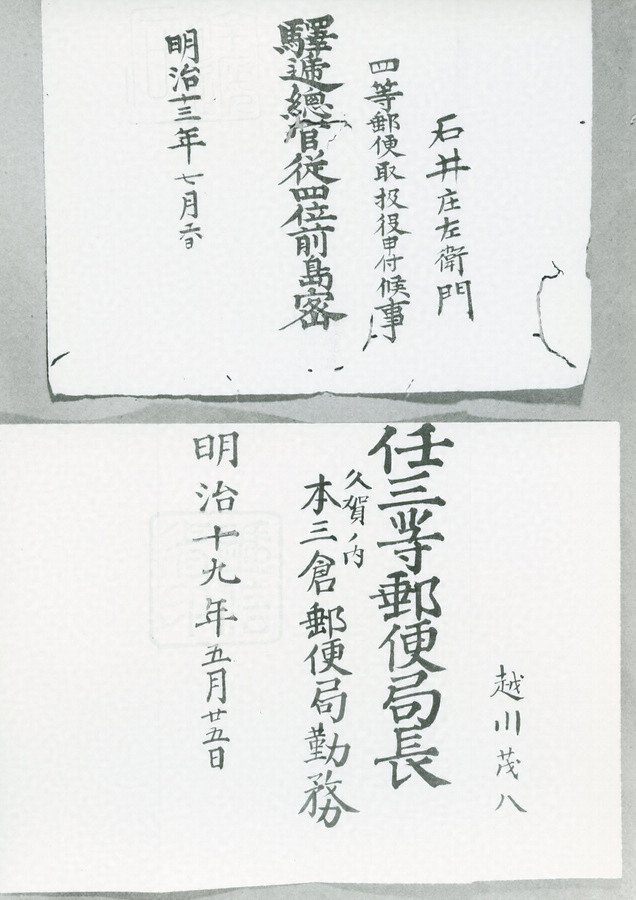 石井庄左衛門
四等郵便取扱役申付候事
驛逓總官従四位前島密
明治十三年七月
越川茂八
任三等郵便局長
久賀ノ内
本三倉郵便局勤務
明治十九年五月廿五日